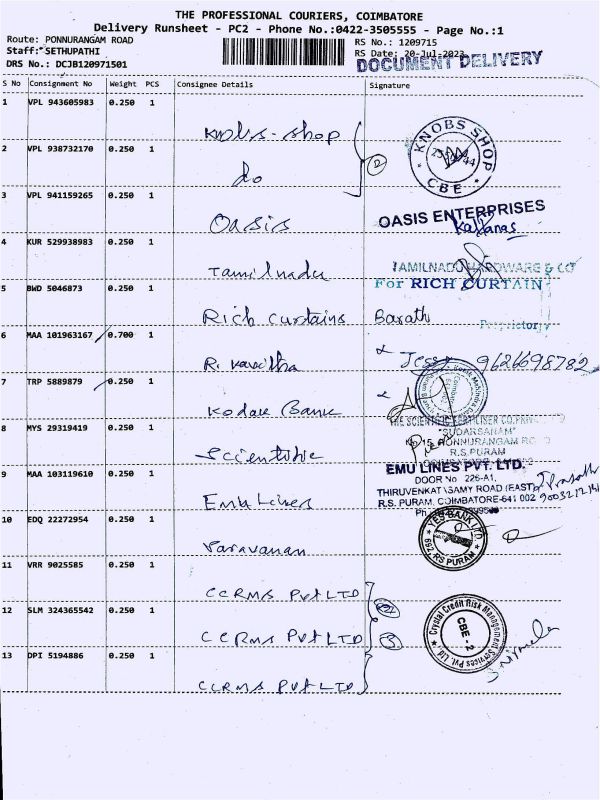 THE PROFESSIONAL COURIERS, COIMBATORE
Delivery Runsheet - PC2 - Phone No.:0422-3505555 - Page No.:1
Route: PONNURANGAM ROAD
Staff: SETHUPATHI
DRS No.: DCJB120971501
RS No.: 1209715
RS Date: 20-Jul-2023
DOCUMENT DELIVERY
S No Consignment No Weight PCS Consignee Details Signature
1 VPL 943605983 0.250 1
Knobs-shop
KNOBS SHOP
CBE
2 VPL 938732170 0.250 1
do
2
3 VPL 941159265 0.250 1
Oasis
OASIS ENTERPRISES
4 KUR 529938983 0.250 1
Tamilnadu
TAMILNADU HARDWARE & CO
5 BWD 5046873 0.250 1
For RICH CURTAIN
Rich curtains Barath
Proprietor
6 MAA 101963167 0.700 1
R. Kavitha
9626698782
7 TRP 5889879 0.250 1
Kodak Bank
8 MYS 29319419 0.250 1
THE SCIENTIFIC FERTILISER CO.
"SUDARSANAM"
15, PONNURANGAM RO D
R.S.PURAM
Scientific
9 MAA 103119610 0.250 1
EMU LINES PVT. LTD.
DOOR No 226-A1,
THIRUVENKATASAMY ROAD (EAST)
R.S. PURAM, COIMBATORE-641 002
Emu Lines
10 EDQ 22272954 0.250 1
Saravanan
YES BANK LTD
R.S PURAM
11 VRR 9025585 0.250 1
CCRMS PVT LTD
12 SLM 324365542 0.250 1
CCRMS PVT LTD
3
Crystal Credit Risk Management Services Pvt. Ltd.,
CBE - 2
Nirmala
13 DPI 5194886 0.250 1
CCRMS PVT LTD